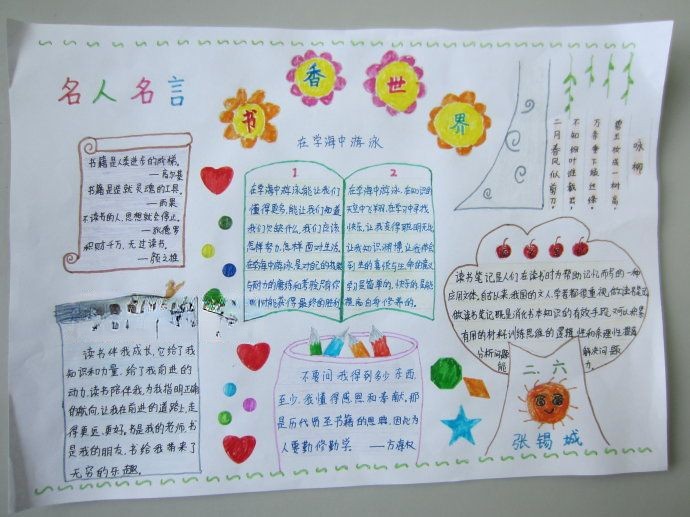 书香世界
名人名言
书籍是人类进步的阶梯。
——高尔基
书籍是造就灵魂的工具。
——雨果
不读书的人,思想就会停止。
——狄德罗
积财千万,无过读书。
——颜之推
在学海中游泳
1
在学海中游泳,能让我们
懂得更多,能让我们知道
我们欠缺什么,我们应该
怎样努力,怎样面对生活,
在学海中游泳,是对自己的
与耐力的磨练和考验,陪你
能获得最终的胜利
2
在学海中游泳,在知识的
天空中飞翔,在学习中寻找
快乐,让我变得聪明
让我知识渊博,让我体会
到生的喜悦与生命的意义
学习是简单的,快乐的,是能
提高自身修养的。
咏柳
碧玉妆成一树高,
万条垂下绿丝绦。
不知细叶谁裁出,
二月春风似剪刀。
读书笔记是人们在读书时为帮助记忆而写的一种
应用文体。自古以来,我国的文人、学者都很重视做读书笔记。
做读书笔记既是消化书本知识的有效手段,又可以积累
有用的材料,训练思维的逻辑性和条理性,提高
分析问题 解决问题
能 力。
读书伴我成长,它给了我
知识和力量,给了我前进的
动力,读书陪伴我,为我指明正确
的航向,让我在前进的道路上走
得更远、更好。书是我的老师,书
是我的朋友,书给我带来了
无穷的乐趣。
不要问我得到多少东西,
至少,我懂得感恩和奉献,那
是历代贤圣书籍的恩赐,因此为
人要勤修勤学。 ——方海权
二.六
张锡城